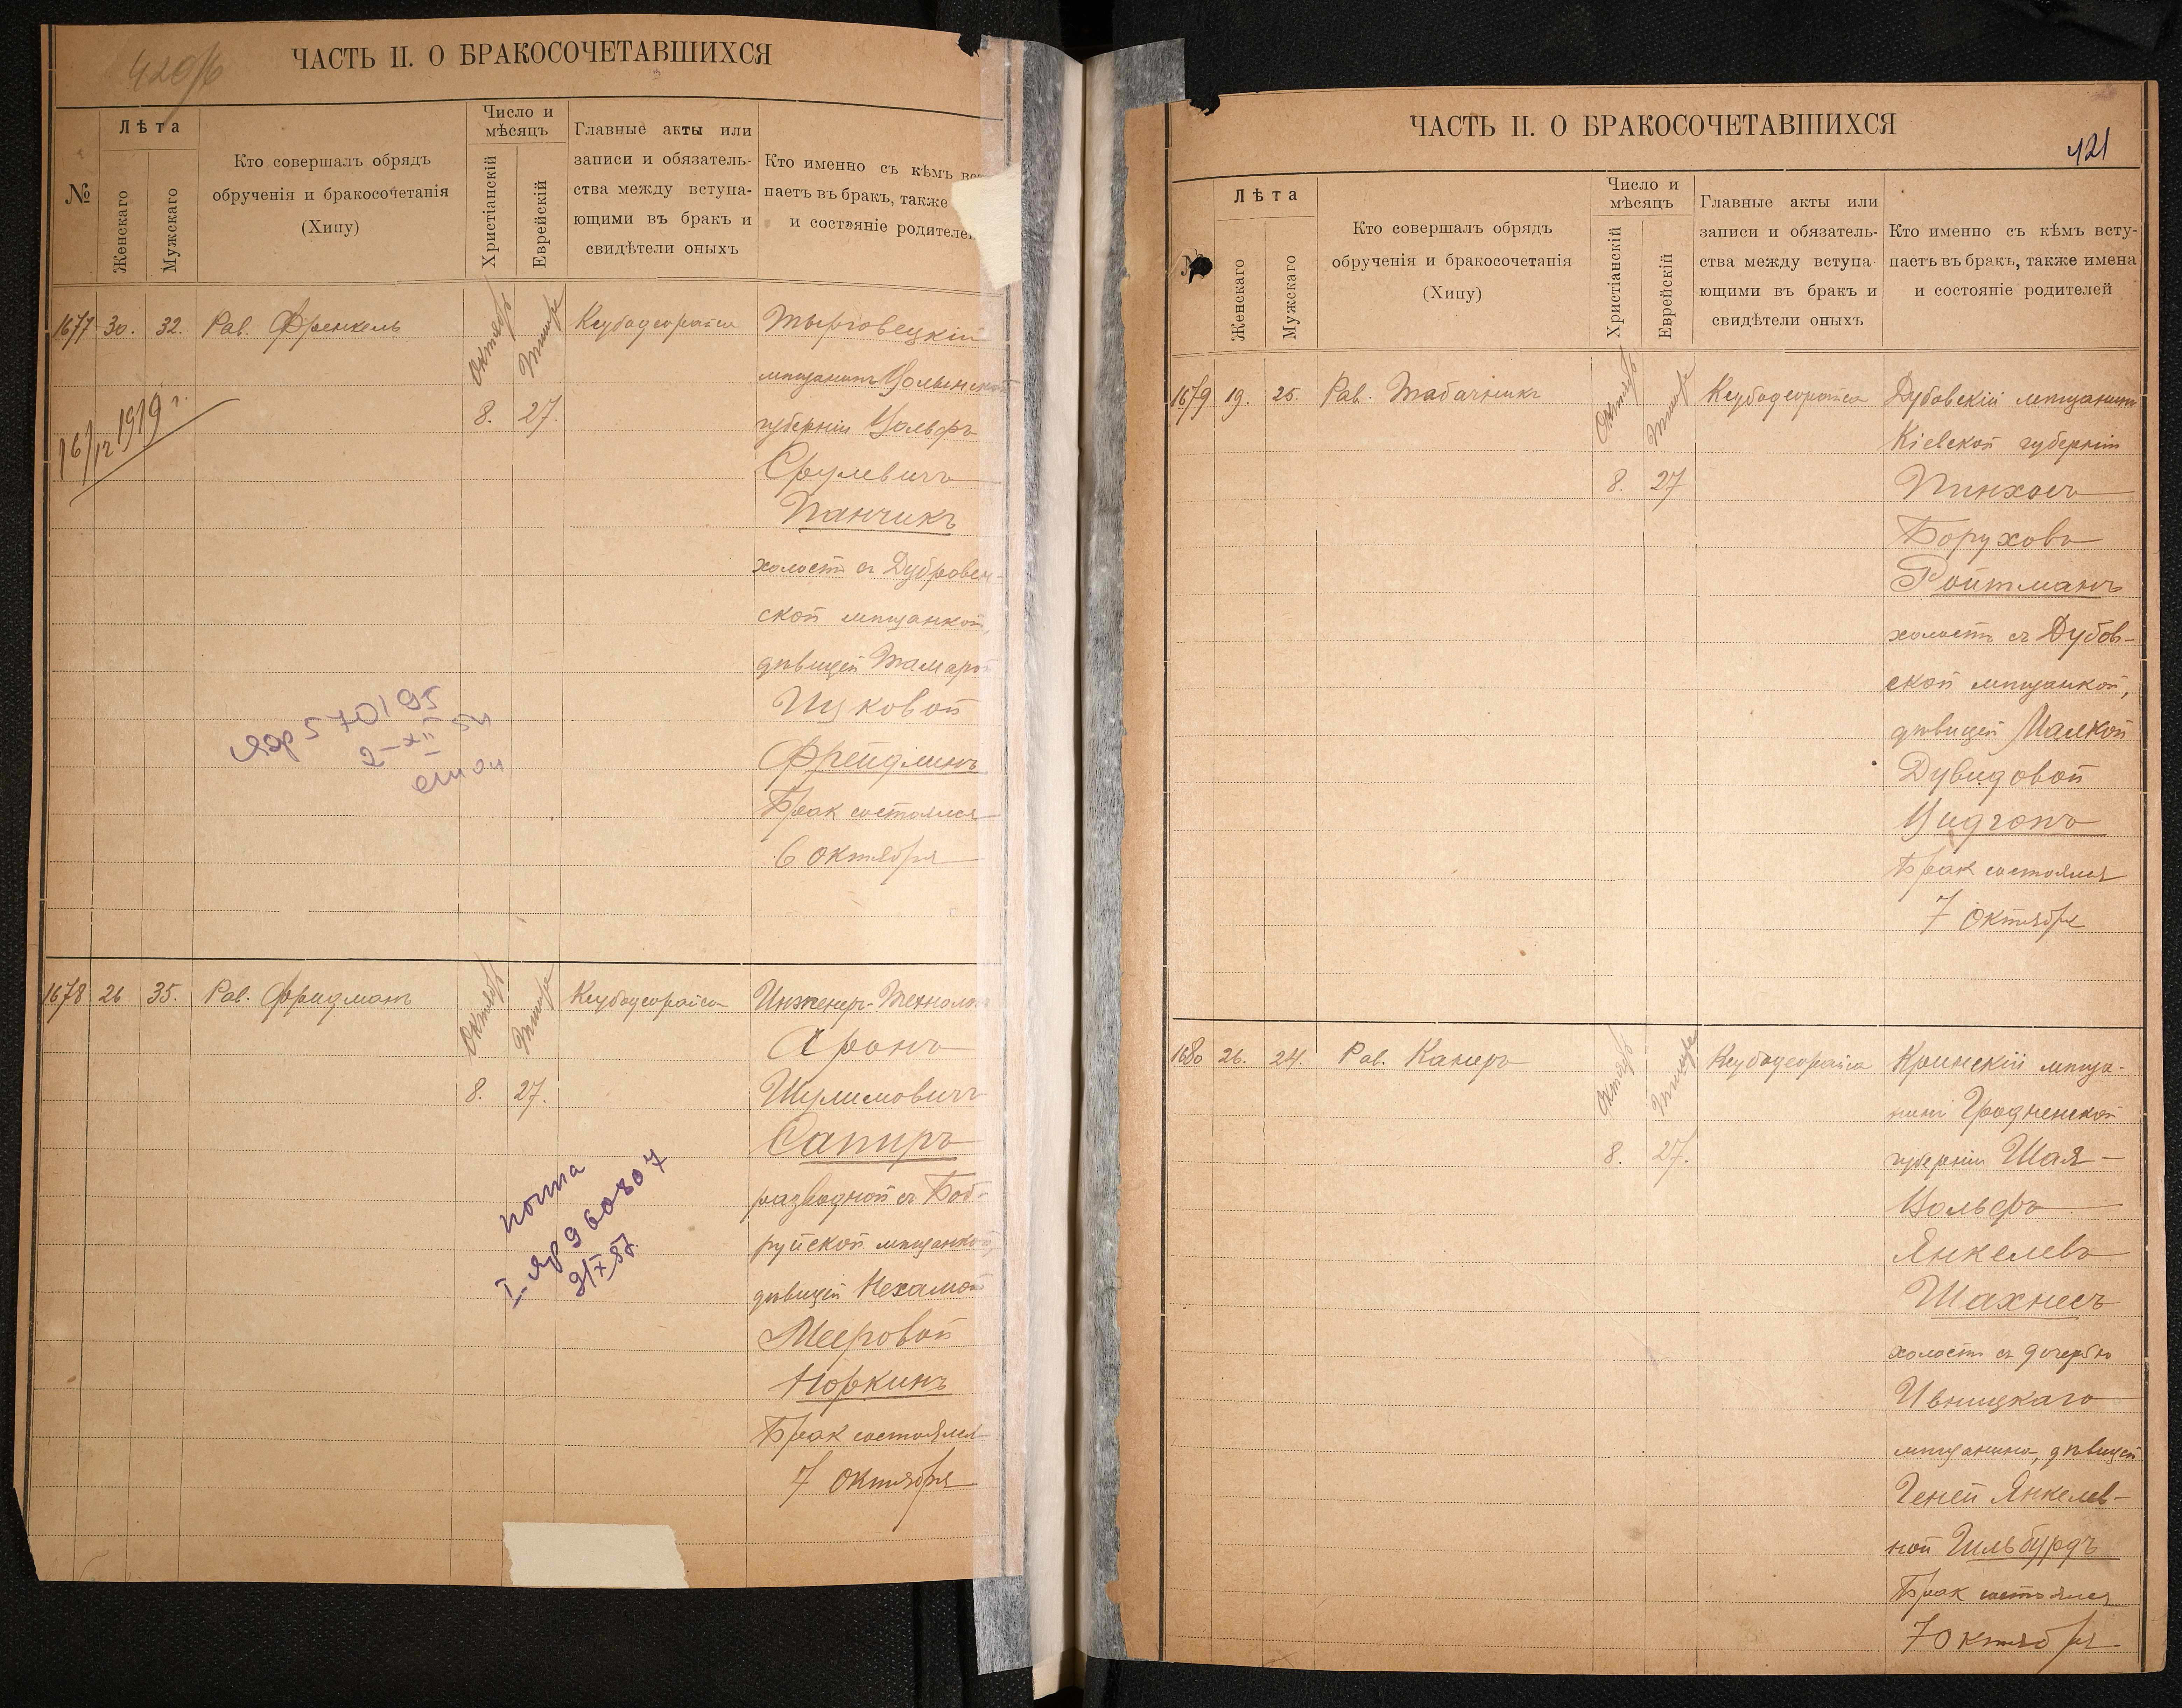 420об
ЧАСТЬ II. О БРАКОСОЧЕТАВШИХСЯ
№
Лѣта
Женскаго
Мужскаго
Кто совершалъ обрядъ
обрученія и бракосочетанія
(Хипу)
Число и
мѣсяцъ
Христіанскій
Еврейскій
Главные акты или
записи и обязатель-
ства между вступа-
ющими въ бракъ и
свидѣтели оныхъ
Кто именно съ кѣмъ вст
паетъ въ бракъ, также
и состояніе родителе
1677 30. 32. Рав. Френкель
Октябрь Тишре
8. 27.
16/12 1919 г.
мѣщанинъ Волынской
губерніи Вольфъ
Срулевичъ
Панчикъ
холостъ съ Дубровен-
ской мѣщанкой,
дѣвицей Тамарой
Ицковой
Фрейдлинъ
Бракъ состоялся
6 Октября
1678 26 35. Рав. Фридманъ
Октябрь Тишре
8. 27.
Инженеръ-Технологъ
Аронъ
Шулимовичъ
Сапиръ
разводной съ Боб-
руйской мѣщанкой,
дѣвицей Нехамой
Мееровой
Норкинъ
Бракъ состоялся
7 Октября
ЧАСТЬ II. О БРАКОСОЧЕТАВШИХСЯ
421
№
Лѣта
Женскаго
Мужскаго
Кто совершалъ обрядъ
обрученія и бракосочетанія
(Хипу)
Число и
мѣсяцъ
Христіанскій
Еврейскій
Главные акты или
записи и обязатель-
ства между вступа-
ющими въ бракъ и
свидѣтели оныхъ
Кто именно съ кѣмъ всту-
паетъ въ бракъ, также имена
и состояніе родителей
1679 19. 25. Рав. Табачникъ
Октябрь Тишре
8. 27
Дубовскій мѣщанинъ
Кіевской губерніи
Пинхосъ
Боруховъ
Ройтманъ
холостъ съ Дубов-
ской мѣщанкой,
дѣвицей Малкой
Дувидовой
Цидгонъ
Бракъ состоялся
7 Октября
1680 26. 24. Рав. Канеръ
Октябрь Тишре
8. 27.
Крынскій мѣща-
нинъ Гродненской
губерніи Шая-
Вольфъ
Янкелевъ
Шахнесъ
холостъ съ дочерью
Ивницкаго
мѣщанина, дѣвицей
Геней Янкелев-
ной Гильбурдъ
Бракъ состоялся
7 Октября